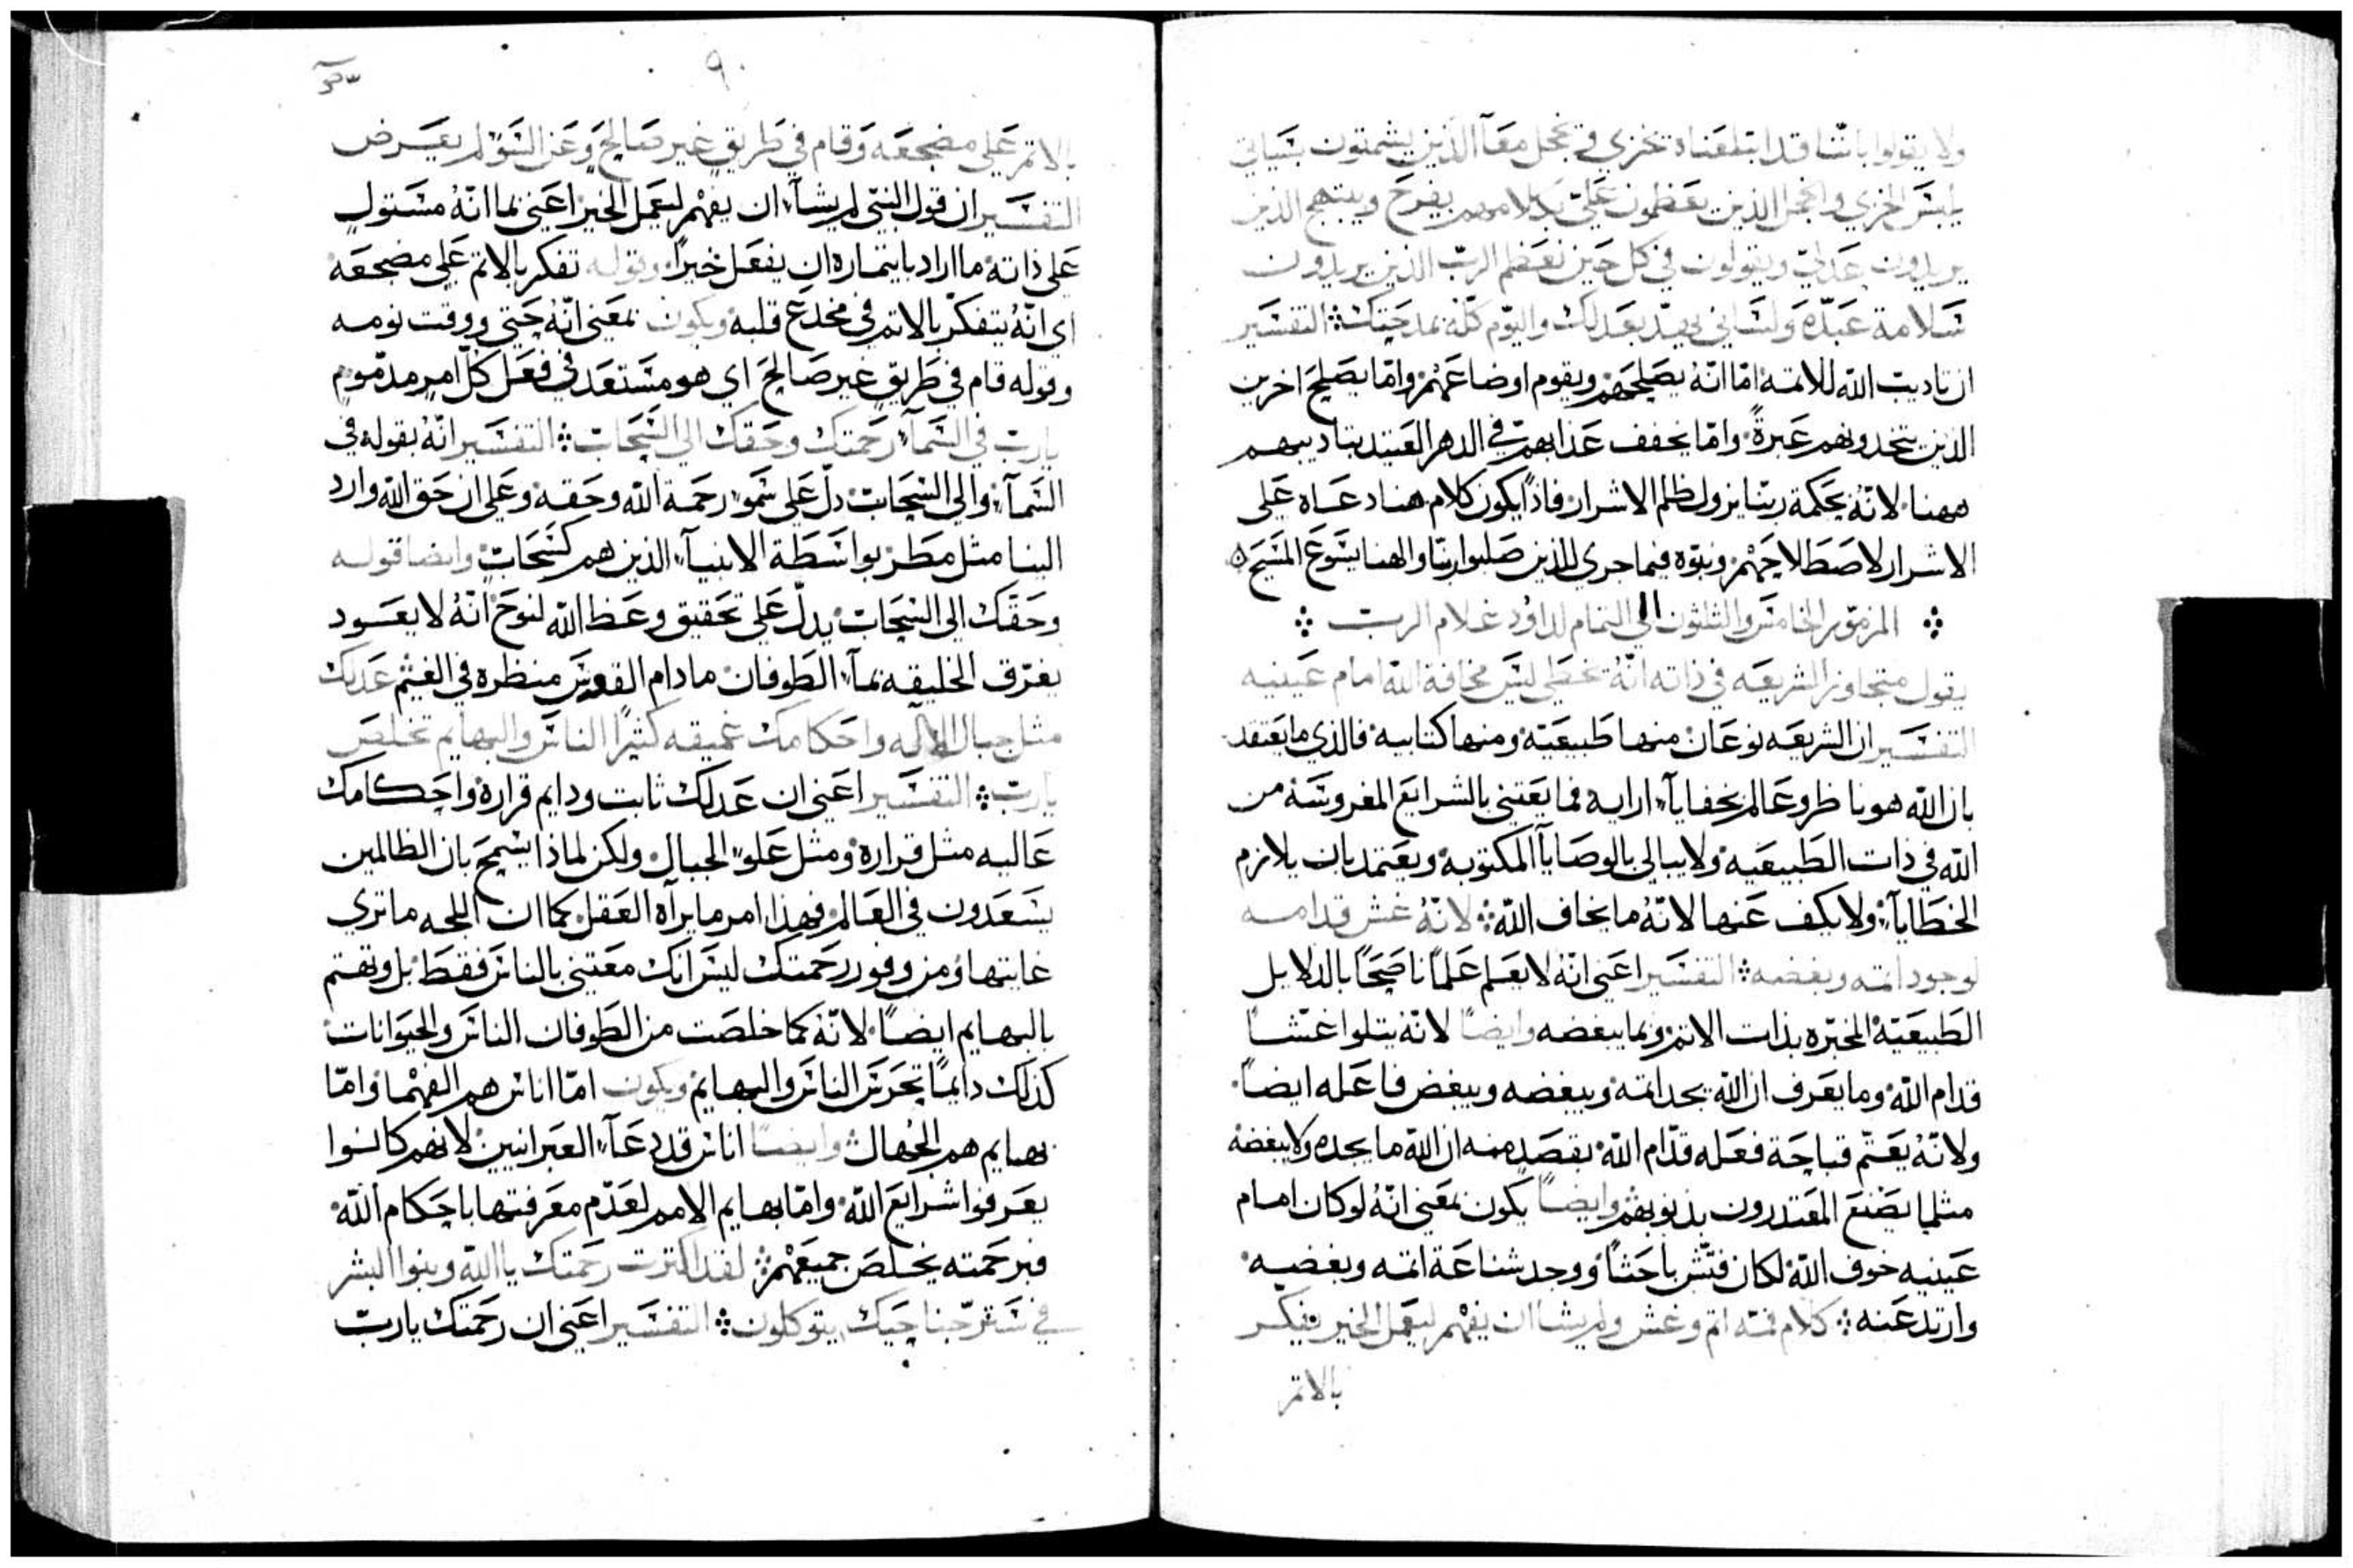 ولا يقولوا باننا قد ابتلعناه تخزى وتخجل معًا الذين يشمتون بسياتي
يلبس الخزي والخجل الذين يعظمون عليّ بكلامهم يفرح ويبتهج الذين
يريدون عدلي ويقولون في كل حين تعظم الربّ الذين يريدون
سلامة عبده ولساني يهذ بعدلك واليوم كلّه بمدحتك التفسير
ان تاديب الله للاتمة امّا انّه يصلحهم ويقوم اوضاعهم وامّا يصلح اخرين
الذين يتخدونهم عبرةً وامّا يخفف عذابهم في الدهر العتيد بتاديبهم
ههنا لانّه بحكمة ربنا يزول ظلم الاشرار فاذًا يكون كلام هنا دعاه على
الاشرار لاصطلاحهم ونبوّه فيما جرى للذين صلبوا ربنا والهنا يسوع المسيح
المزمور الخامس والثلثون الى التمام لداود غلام الرب
يقول متجاوز الشريعه في ذاته انّه تخطى ليس مخافة الله امام عينيه
التفسير ان الشريعه نوعان منها طبيعيّة ومنها كتابيه فالذي ما يعتقد
بان الله هو ناظر وعالم بخفايآ ارايه فما يعتني بالشرايع المغروسة من
الله في ذات الطبيعيه ولا يبالي بالوصايآ المكتوبة ويعتمد بان يلازم
الخطايآ ولا يكف عنها لانّه ما يخاف الله لانّه غش قدامه
لوجود اتمه وبغضه التفسير اعني انّه لا يعلم علمًا ناصحًا بالدلايل
الطبيعيّة المخبّره بذات الاتم وبما يبغضه وايضًا لانّه يتلوا غشا
قدام الله وما يعرف ان الله يجد اتمه ويبغضه ويبغض فاعله ايضًا
ولانّه يعتّم قباحة فعله قدّام الله بقصد منه ان الله ما يجده ولا يبغضه
مثلما يصنع المعتدرون بذنوبهم وايضًا يكون بمعنى انّه لو كان امام
عينيه خوف الله لكان فتّش باحثًا ووجد شناعة اتمه وبغضيه
وارتد عنه كلام فمه اتم وغش ولم يشا ان يفهم ليعمل الخير تفكّر
بالاتم
٩٠
بالاتم على مضجعه وقام في طريق غير صالح وعن السوّ لم يعرض
التفسير ان قول النبي لم يشآ ان يفهم ليعمل الخير اعني بما انّه مستول
على ذاته ما اراد بايتماره ان يفعل خيرًا وقوله تفكر بالاتم على مضجعه
اي انّه يتفكّر بالاتم في مخدع قلبه ويكون بمعنى انّه حتى ووقت نومه
وقوله قام في طريق غير صالح اي هو مستعد في فعل كلّ امرٍ مدّمومٍ
يارب في السمآ رحمتك وحقك الى السحاب التفسير انّه بقوله في
السمآ والى السحاب دلّ على سموّ رحمة الله وحقه وعلى ان حق الله وارد
الينا مثل مطر بواسطة الانبيآ الذين هم كسحاب وايضا قوله
وحقّك الى السحاب يدلّ على تحقيق وعظ الله لنوح انّه لا يعود
يغرّق الخليقه بمآ الطوفان ما دام القوس منظره في الغيم عدلك
مثل جبال الاله واحكامك عميقه كثيرًا الناس والبهايم تخلص
يارب التفسير اعني ان عدلك ثابت ودايم قراره واحكامك
عاليه مثل قراره ومثل علوّ الجبال ولكن لماذا يسمح بان الظالمين
يسعدون في العالم فهذا امر ما يراه العقل كما ان اللجه ما ترى
غايتها ومن وفور رحمتك ليس انك معتني بالناس فقط بل وتهتم
بالبهايم ايضًا لانّه كما خلصت من الطوفان الناس والحيوانات
كذلك دايمًا تحرس الناس والبهايم ويكون امّا اناس هم الفهما وامّا
بهايم هم الجهال وايضًا اناس قد دعآ العبرانيين لانهم كانوا
يعرفوا شرايع الله وامّا بهايم الامم لعدّم معرفتها باحكام الله
فبرحمته يخلص جميعهم لقد اكترت رحمتك يا الله وبنوا البشر
في ستر جناحيك يتوكلون التفسير اعني ان رحمتك يارب